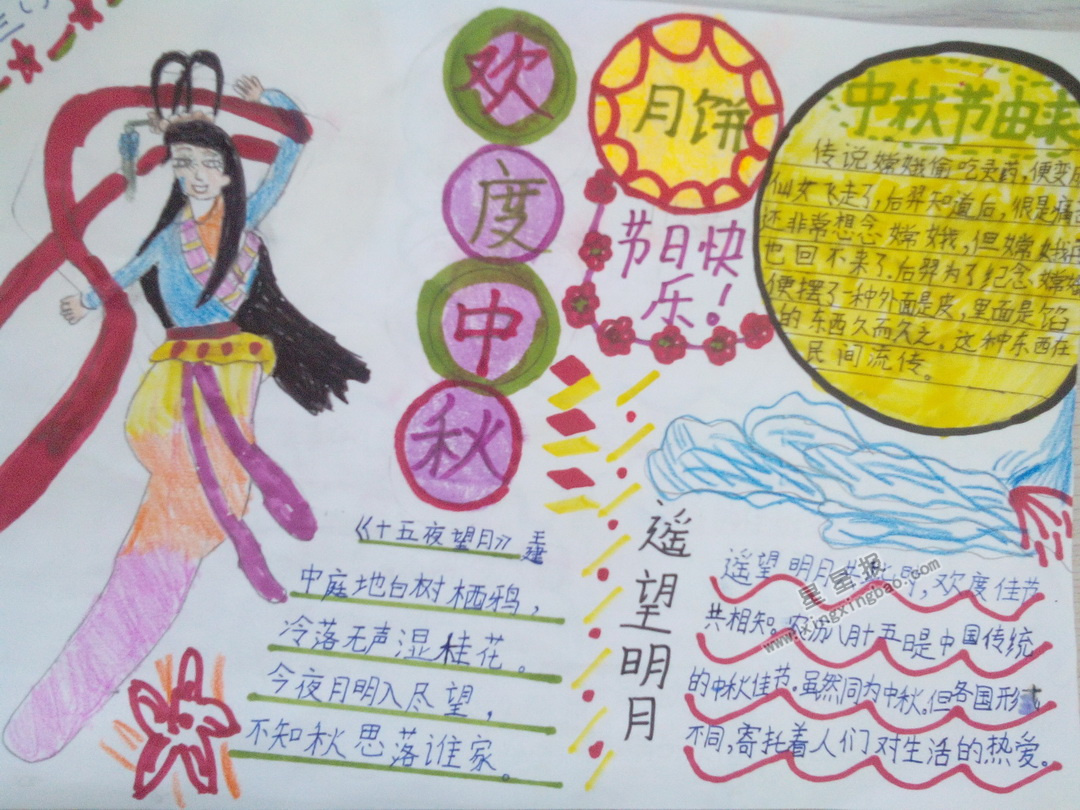 欢
度
中
秋
月饼
节日快
乐！
中秋节由来
传说嫦娥偷吃灵药，便变成
仙女飞走了，后羿知道后，很是痛
还非常想念嫦娥，但嫦娥再
也回不来了。后羿为了纪念嫦娥
便摆了一种外面是皮，里面是馅
的东西久而久之。这种东西在
民间流传。
《十五夜望月》王建
中庭地白树栖鸦，
冷落无声湿桂花。
今夜月明人尽望，
不知秋思落谁家。
遥
望
明
月
遥望明月，欢度佳节
共相知。农历八月十五日是中国传统
的中秋佳节。虽然同为中秋。但各国形式
不同，寄托着人们对生活的热爱。
星星报
www.ixingxingbao.com